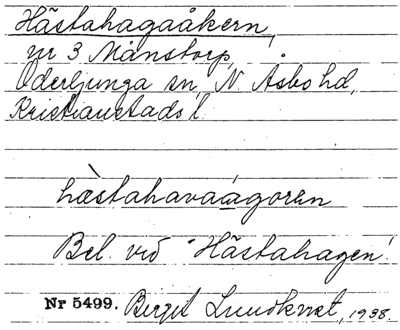 Hästahagaåkern,
nr 3 Månstorp,
Oderljunga sn, N. Åsbo hd,
Kristianstads l.
hæ̀stahavaágoren
Bel. vid "Hästahagen".
Nr 5499. Birgit Lundkvist, 1938.